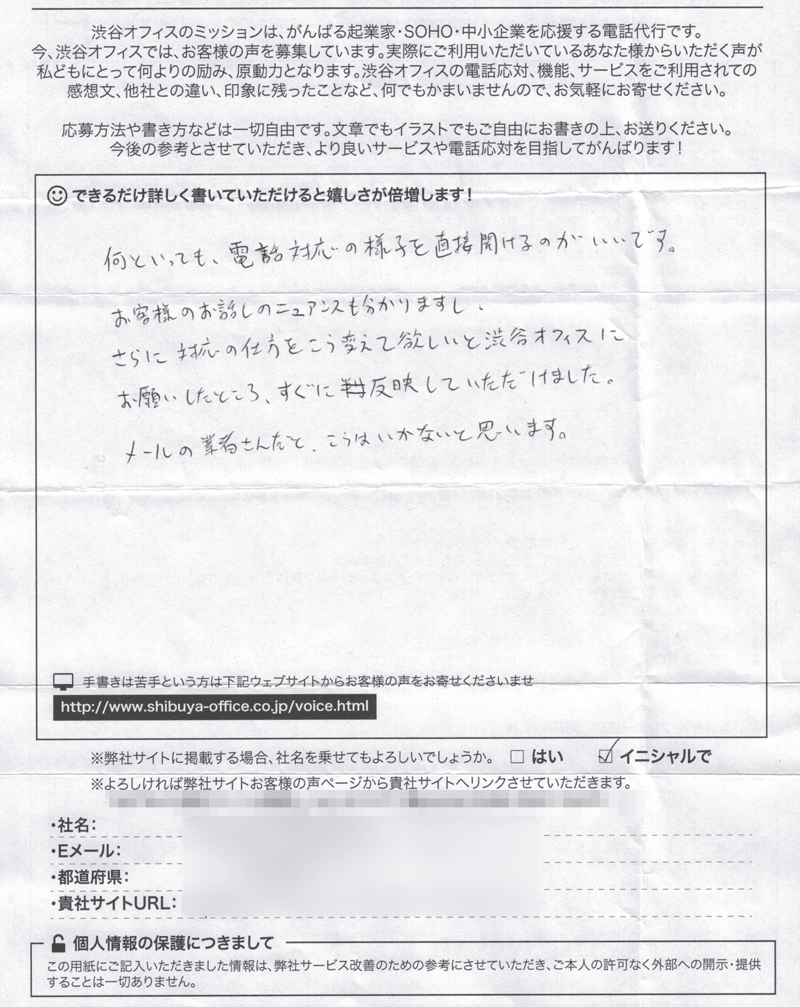 渋谷オフィスのミッションは、がんばる起業家・SOHO・中小企業を応援する電話代行です。
今、渋谷オフィスでは、お客様の声を募集しています。実際にご利用いただいているあなた様からいただく声が
私どもにとって何よりの励み、原動力となります。渋谷オフィスの電話応対、機能、サービスをご利用されての
感想文、他社との違い、印象に残ったことなど、何でもかまいませんので、お気軽にお寄せください。
応募方法や書き方などは一切自由です。文章でもイラストでもご自由にお書きの上、お送りください。
今後の参考とさせていただき、より良いサービスや電話応対を目指してがんばります！
できるだけ詳しく書いていただけると嬉しさが倍増します！
何といっても、電話対応の様子を直接聞けるのがいいです。
お客様のお話しのニュアンスも分かりますし、
さらに対応の仕方をこう変えて欲しいと渋谷オフィスに
お願いしたところ、すぐに反映していただけました。
メールの業者さんだと、こうはいかないと思います。
手書きは苦手という方は下記ウェブサイトからお客様の声をお寄せくださいませ
http://www.shibuya-office.co.jp/voice.html
※弊社サイトに掲載する場合、社名を乗せてもよろしいでしょうか。 □ はい ☑ イニシャルで
※よろしければ弊社サイトお客様の声ページから貴社サイトへリンクさせていただきます。
・社名：
・Eメール：
・都道府県：
・貴社サイトURL：
個人情報の保護につきまして
この用紙にご記入いただきました情報は、弊社サービス改善のための参考にさせていただき、ご本人の許可なく外部への開示・提供
することは一切ありません。